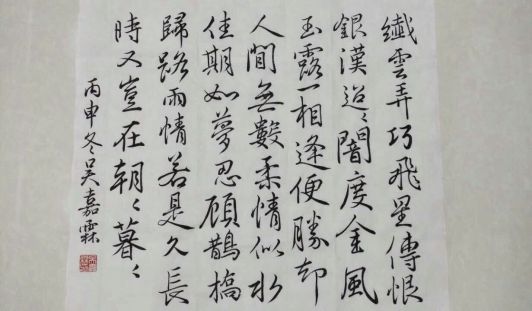 纖雲弄巧飛星傳恨
銀漢迢〻闇度金風
玉露一相逢便勝卻
人間無數柔情似水
佳期如夢忍顧鵲橋
歸路兩情若是久長
時又豈在朝〻暮〻
丙申冬吴嘉霖